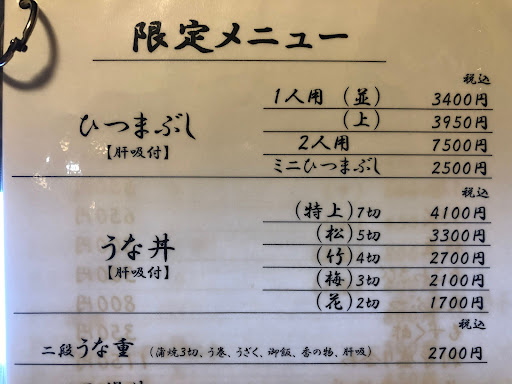 限定メニュー
税込
ひつまぶし
【肝吸付】
1人用 (並) 3400円
(上) 3950円
2人用 7500円
ミニひつまぶし 2500円
税込
うな丼
【肝吸付】
(特上)7切 4100円
(松)5切 3300円
(竹)4切 2700円
(梅)3切 2100円
(花)2切 1700円
税込
二段うな重 (蒲焼3切、う巻、うざく、御飯、香の物、肝吸) 2700円